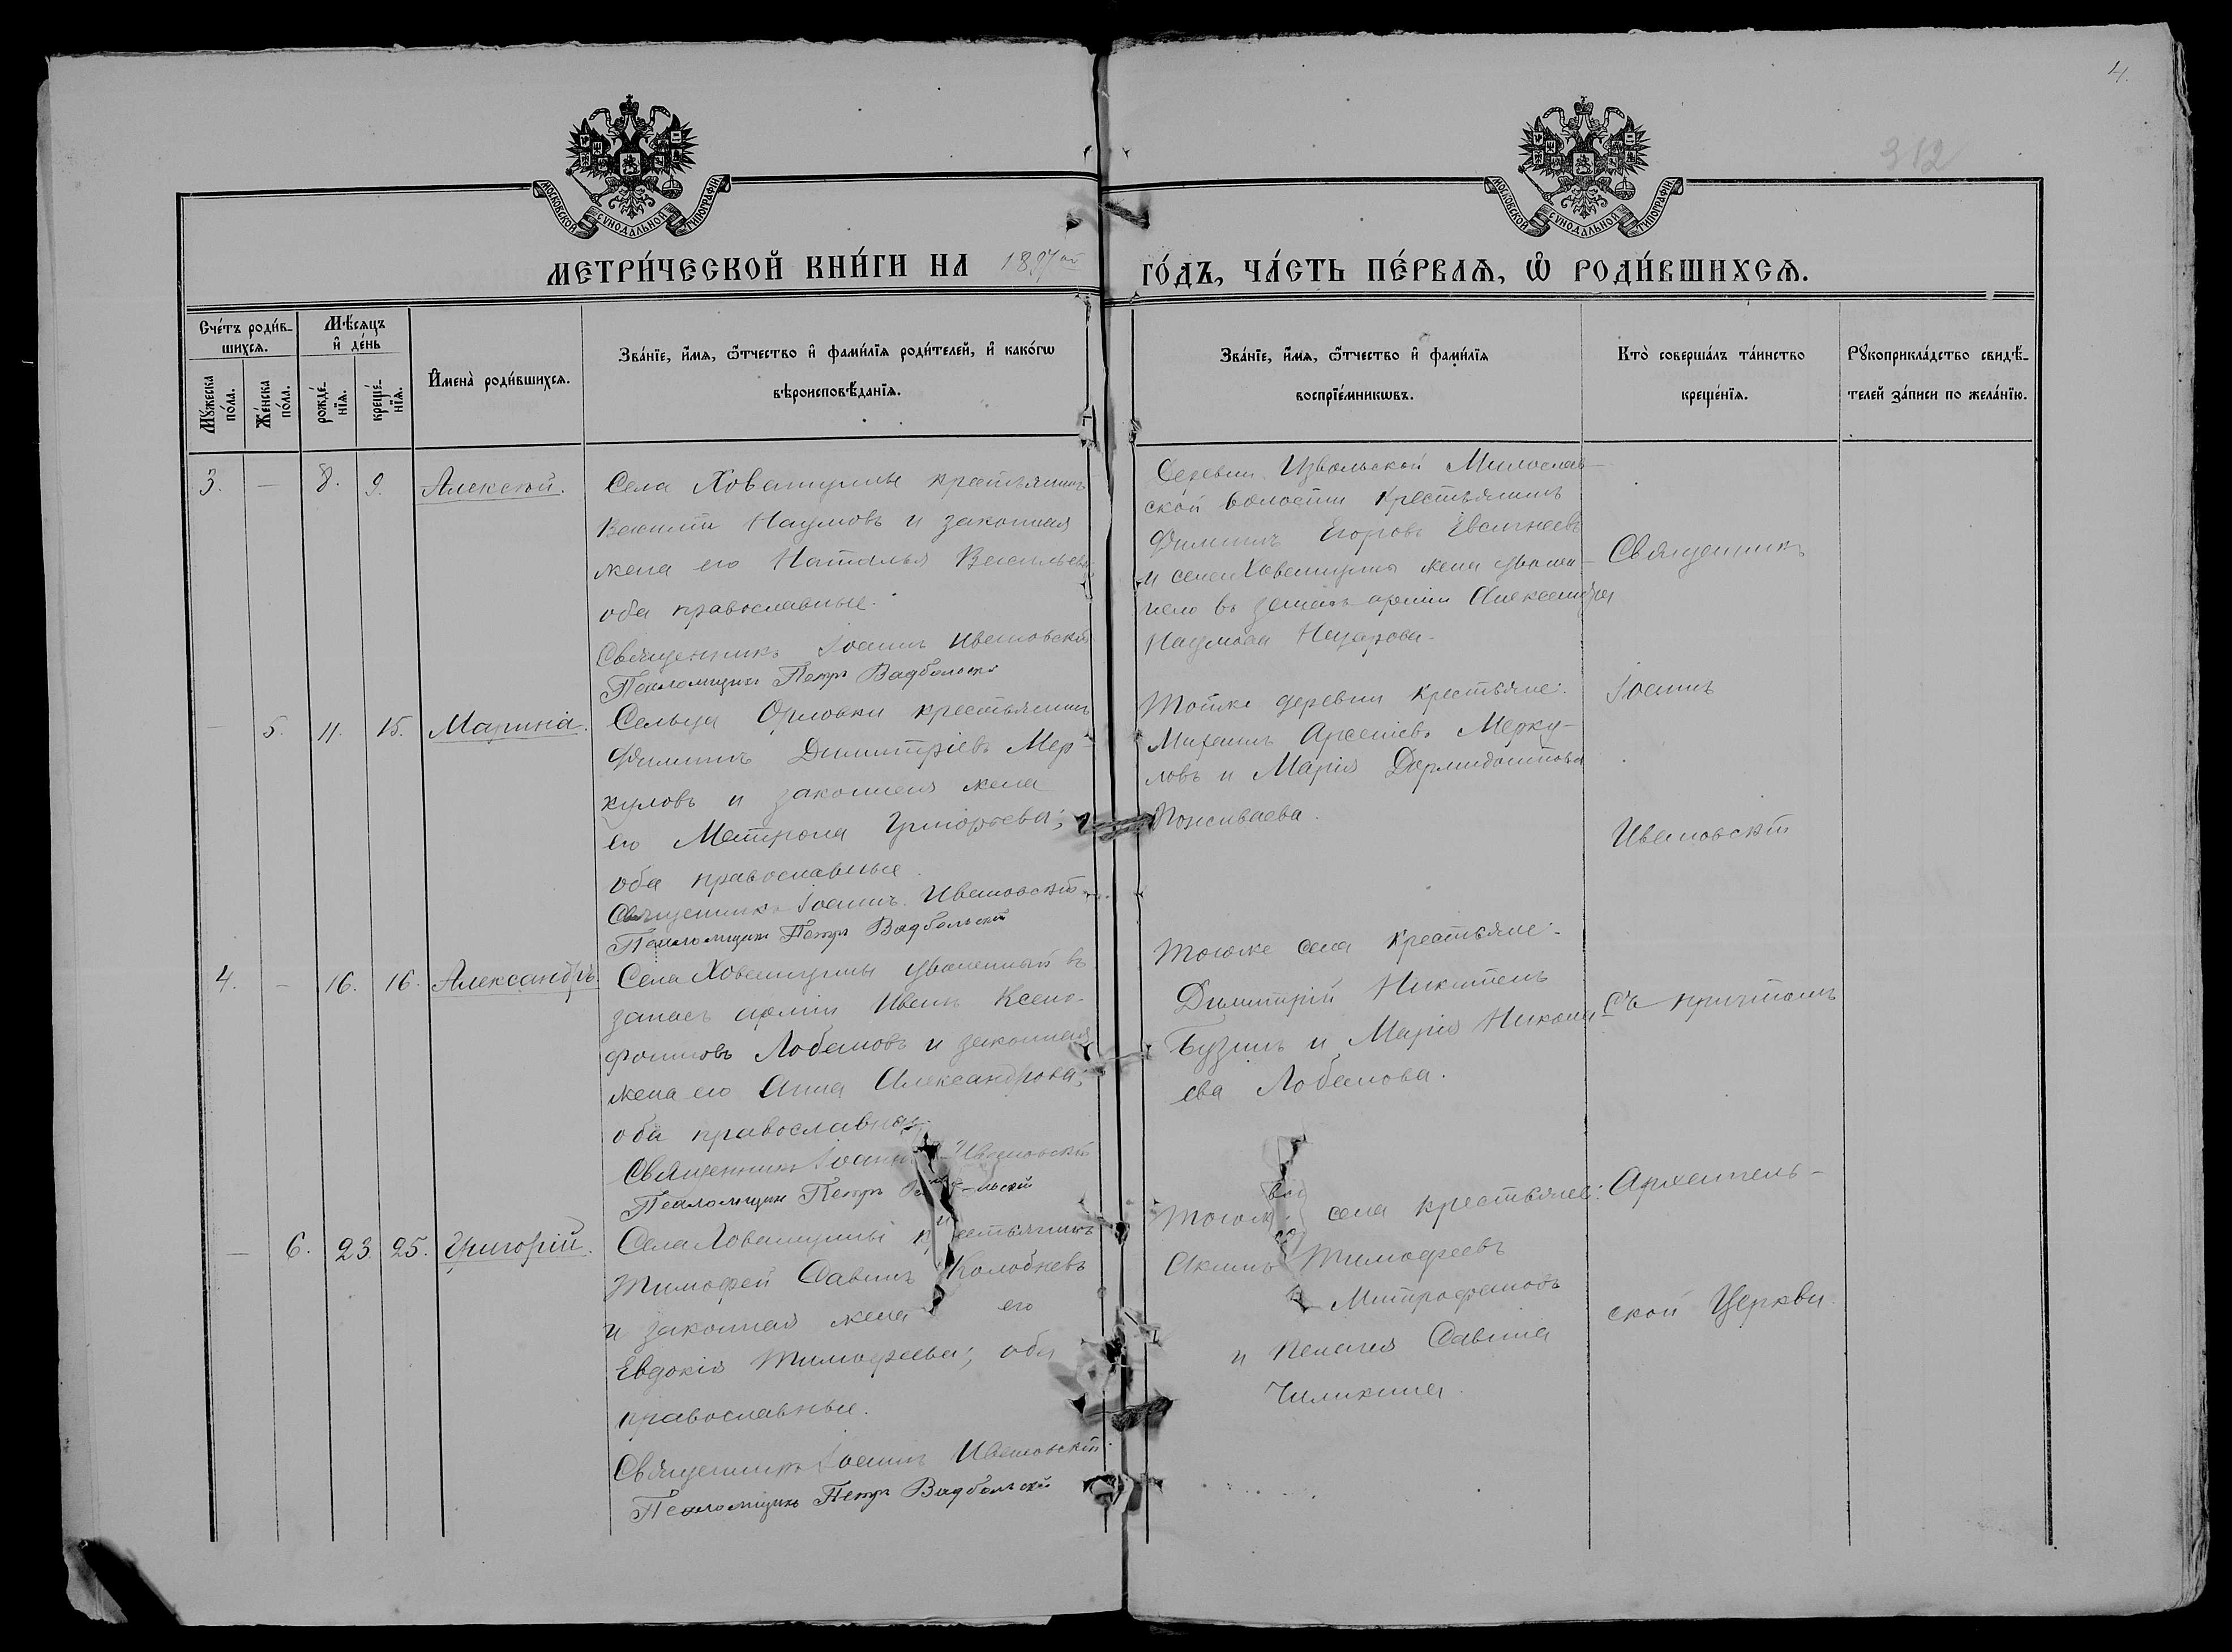 4.
312
МОСКОВСКОЙ СѴНОДАЛЬНОЙ ТИПОГРАФІИ
МОСКОВСКОЙ СѴНОДАЛЬНОЙ ТИПОГРАФІИ
МЕТРИ́ЧЕСКОЙ КНИ́ГИ НА 1897ой ГО́ДЪ, ЧА́СТЬ ПЕ́РВАѦ, Ѡ҆ РОДИ́ВШИХСѦ.
Сче́тъ роди́в-
шихсѧ.
Мꙋ́жеска по́ла.
Же́нска по́ла.
Мѣ́сѧцъ
и҆ де́нь
рожде́-нїѧ.
креще́-нїѧ.
И҆мена̀ роди́вшихсѧ.
Зва́нїе, и҆́мѧ, ѻ҆́тчество и҆ фами́лїѧ роди́телей, и҆ како́гѡ
вѣроисповѣ́данїѧ.
Зва́нїе, и҆́мѧ, ѻ҆́тчество и҆ фами́лїѧ
воспрїе́мникѡвъ.
Кто̀ соверша́лъ та́инство
креще́нїѧ.
Рꙋкоприкла́дство свидѣ́-
телей за́писи по жела́нїю.
3. — 8. 9. Алексѣй.
Села Ховатумы крестьянинъ
Василій Наумовъ и законная
жена его Наталья Васильева
оба православные.
Священникъ Іоаннъ Ивановскій
Псаломщикъ Петръ Вадбольскій
Деревни Извольской Милослав-
ской волости Крестьянинъ
Филиппъ Егоровъ Евсигнеевъ
и села жена уволен-
наго въ запасъ арміи Александра
Наумова Назарова.
— 5. 11. 15. Марина.
Сельца Орловки крестьянинъ
Филиппъ Димитріевъ Мер-
куловъ и законная жена
его Матрона Григорьева;
оба православные.
Священникъ Іоаннъ Ивановскій
Псаломщикъ Петръ Вадбольскій
Тойже деревни крестьяне:
Михаилъ Арсеніевъ Мерку-
ловъ и Марія Дормидонтова
4. — 16. 16. Александръ.
Села уволенный въ
запасъ арміи Иванъ Ксено-
фонтовъ Лобановъ и законная
жена его Анна Александрова;
оба православные.
Священникъ Іоаннъ Ивановскій
Псаломщикъ Петръ
Тогоже села крестьяне:
Димитрій Никитинъ
Бузинъ и Марія Никола
ева Лобанова.
— 6. 23. 25. Григорій.
Села крестьянинъ
Тимофей Савинъ Колобневъ
и законная жена его
Евдокія Тимофеева; оба
православные.
Священникъ Іоаннъ Ивановскій
Псаломщикъ Петръ Вадбольскій
Тогоже села крестьяне:
Акимъ Тимофеевъ
Митрофановъ
и Пелагія Савина
Чиликина.
Священникъ
Іоаннъ
Ивановскій
съ причтомъ
Архангель-
ской Церкви.